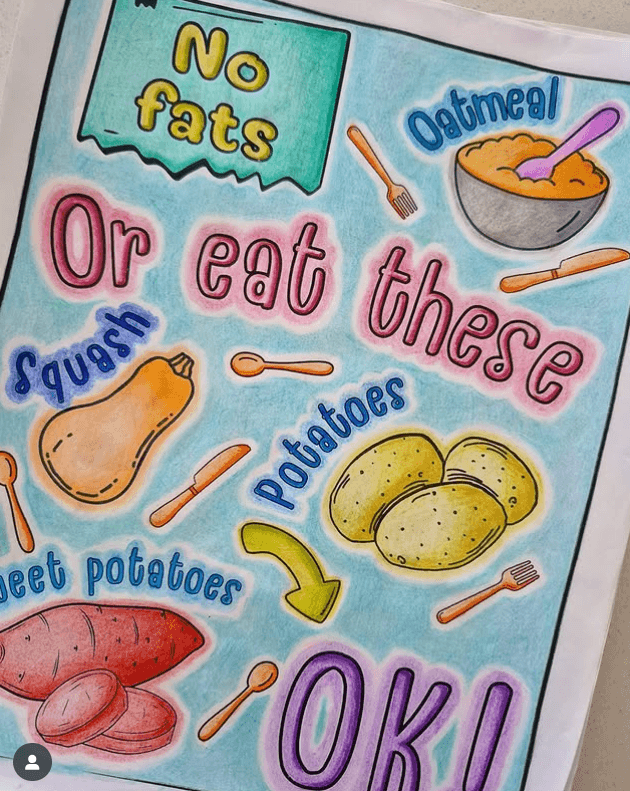 No
fats
Oatmeal
Or eat these
Squash
Potatoes
eet potatoes
OK!